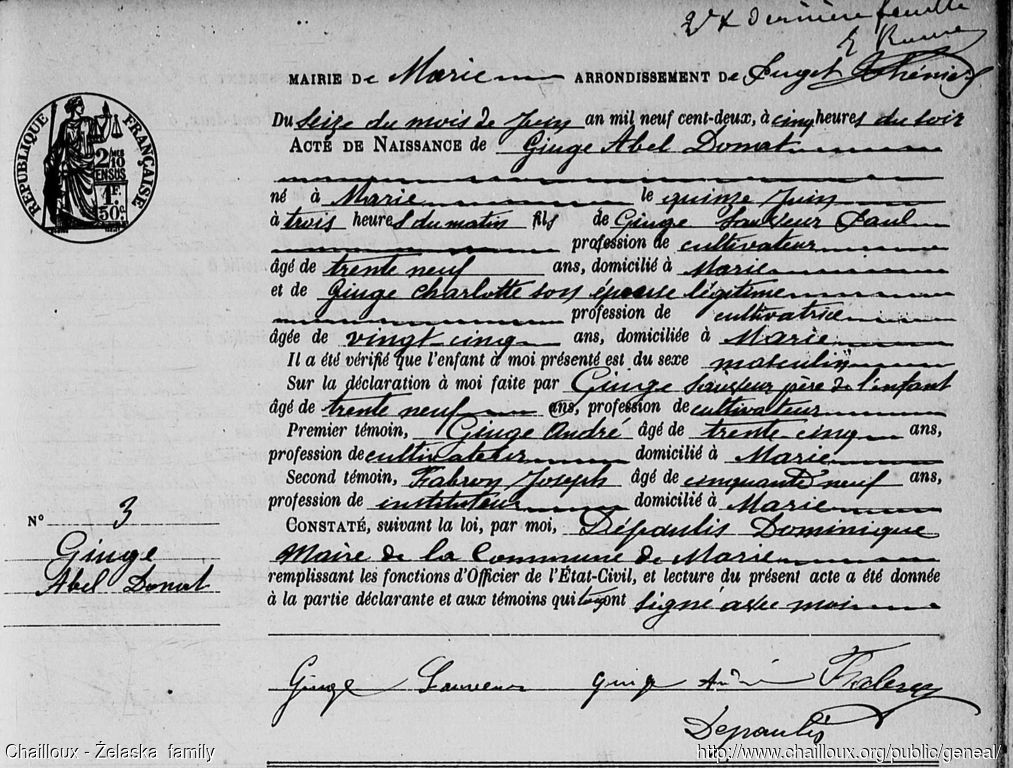 2e & dernière feuille
MAIRIE De Marie ARRONDISSEMENT De Puget Théniers
Du Seize du mois de Juin an mil neuf cent-deux, à cinq heures du soir
ACTE DE NAISSANCE de Ginge Abel Donat
né à Marie le quinze Juin
à trois heures du matin fils de Ginge Sauveur Paul
profession de cultivateur
âgé de trente neuf ans, domicilié à Marie
et de Ginge Charlotte son épouse légitime
profession de cultivatrice
âgée de vingt cinq ans, domiciliée à Marie
Il a été vérifié que l'enfant à moi présenté est du sexe masculin
Sur la déclaration à moi faite par Ginge Sauveur père de l'enfant
âgé de trente neuf ans, profession de cultivateur
Premier témoin, Ginge André âgé de trente cinq ans,
profession de cultivateur domicilié à Marie
Second témoin, Fabron Joseph âgé de cinquante neuf ans,
profession de instituteur domicilié à Marie
CONSTATÉ, suivant la loi, par moi, Dépaulis Dominique
Maire de la Commune de Marie
remplissant les fonctions d'Officier de l'État-Civil, et lecture du présent acte a été donnée
à la partie déclarante et aux témoins qui ont signé avec moi
Ginge Sauveur Ginge André Fabron
Depaulis
RÉPUBLIQUE FRANÇAISE
2/10
EN SUS
1F.
50c
N° 3
Ginge
Abel Donat
Chailloux - Želaska family
http://www.chailloux.org/public/geneal/